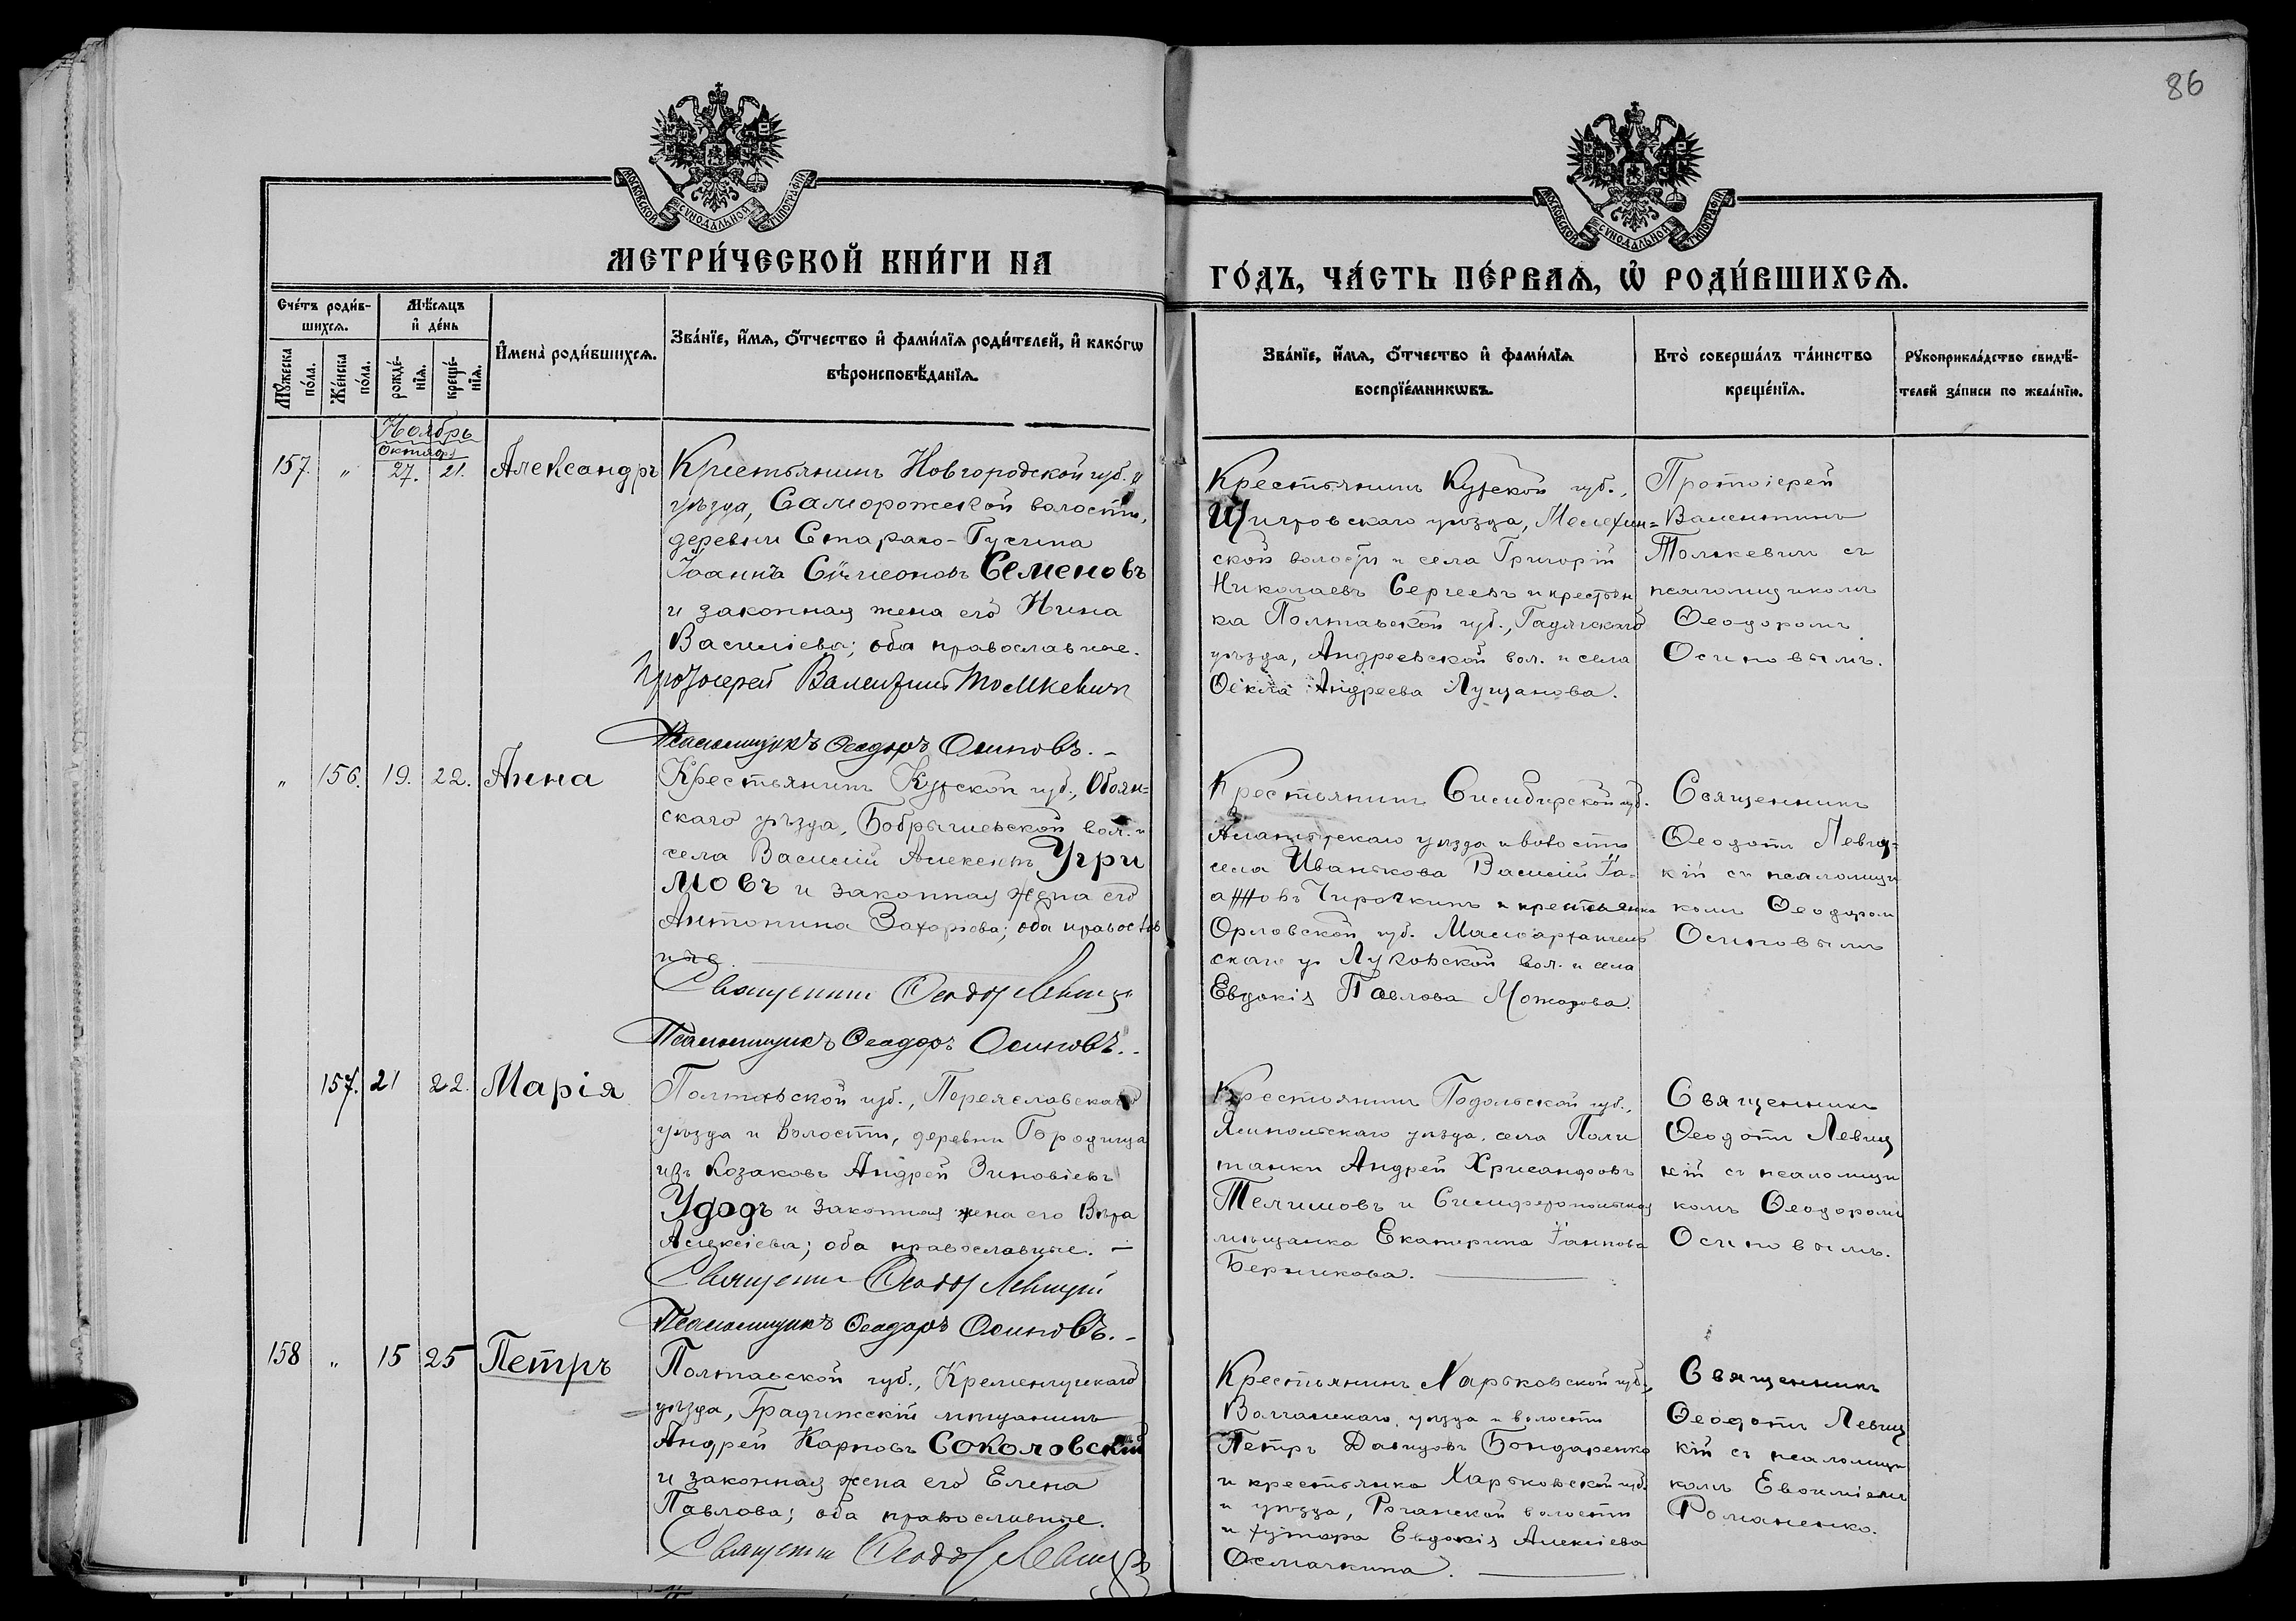 86
МОСКОВСКОЙ СѴНОДАЛЬНОЙ ТИПОГРАФІИ
МОСКОВСКОЙ СѴНОДАЛЬНОЙ ТИПОГРАФІИ
МЕТРИ́ЧЕСКОЙ КНИ́ГИ НА
ГО́ДЪ, ЧА́СТЬ ПЕ́РВАѦ, Ѡ҆ РОДИ́ВШИХСѦ.
Сче́тъ роди́в-
шихсѧ.
Мѣ́сѧцъ
и҆ де́нь
Мꙋ́жеска
по́ла.
Же́нска
по́ла.
рожде́-
нїѧ.
креще́-
нїѧ.
И҆мена̀ роди́вшихсѧ.
Зва́нїе, и҆́мѧ, ѻ҆́тчество и҆ фами́лїѧ роди́телей, и҆ како́гѡ
вѣроисповѣ́данїѧ.
Зва́нїе, и҆́мѧ, ѻ҆́тчество и҆ фами́лїѧ
воспрїе́мникѡвъ.
Кто̀ соверша́лъ та́инство
креще́нїѧ.
Рꙋкоприкла́дство свидѣ́-
телей за́писи по жела́нїю.
Ноябрь
Октябрь
157. " 27. 21. Александръ
Крестьянинъ Новгородской губ. и
уѣзда, Саморожской волости,
деревни Стараго-Гусина
Іоаннъ Сѵмеоновъ Семеновъ
и законная жена его Нина
Василіева; оба православные.
Протоіерей Валентинъ Томкевичъ
Псаломщикъ Ѳеодоръ Осиповъ. -
Крестьянинъ Курской губ.,
Щигровскаго уѣзда, Мелехин=
ской волости и села Григорій
Николаевъ Сергеевъ и крестьян
ка Полтавской губ., Гадячскаго
уѣзда, Андреевской вол. и села
Ѳекла Андреева Лущанова.
Протоіерей
Валентинъ
Томкевичъ съ
псаломщикомъ
Ѳеодоромъ
Осиповымъ.
" 156. 19. 22. Анна
Крестьянинъ Курской губ., Обоян=
скаго уѣзда, Бобрышевской вол. и
села Василій Алексѣевъ Угри
мовъ и законная жена его
Антонина Захаріева; оба православ
ные.
Священникъ Ѳеодотъ Левицкій
Псаломщикъ Ѳеодоръ Осиповъ. -
Крестьянинъ Симбирской губ.
Алатырскаго уѣзда и волости
села Иванькова Василій Іа-
ковъ Чирочкинъ и крестьянка
Орловской губ. Малоархангель
скаго у. Луковской вол. и села
Евдокія Павлова Можарова.
Священникъ
Ѳеодотъ Левиц=
кій съ псаломщи
комъ Ѳеодоромъ
Осиповымъ
157. 21 22. Марія
Полтавской губ., Переяславскаго
уѣзда и волости, деревни Городища
изъ козаковъ Андрей Зиновіевъ
Удодъ и законная жена его Вѣра
Алексіева; оба православные. -
Священникъ Ѳеодотъ Левицкій
Псаломщикъ Ѳеодоръ Осиповъ. -
Крестьянинъ Подольской губ.,
Ямпольскаго уѣзда, села Поли
танки Андрей Хрисанфовъ
Телимовъ и Симферопольская
мѣщанка Екатерина Іаннова
Берникова.
Священникъ
Ѳеодотъ Левиц
кій съ псаломщи
комъ Ѳеодоромъ
Осиповымъ.
158 " 15 25 Петръ
Полтавской губ., Кременчугскаго
уѣзда, Градижскій мѣщанинъ
Андрей Карповъ Соколовскій
и законная жена его Елена
Павлова; оба православные.
Священникъ Ѳеодотъ Левицкій
Крестьянинъ Харьковской губ.,
Волчанскаго уѣзда и волости
Петръ Давидовъ Бондаренко
и крестьянка Харьковской губ.
и уѣзда, Роганской волости
и хутора Евдокія Алексіева
Осмачкина.
Священникъ
Ѳеодотъ Левиц
кій съ псаломщи
комъ Евѳиміемъ
Романенко.